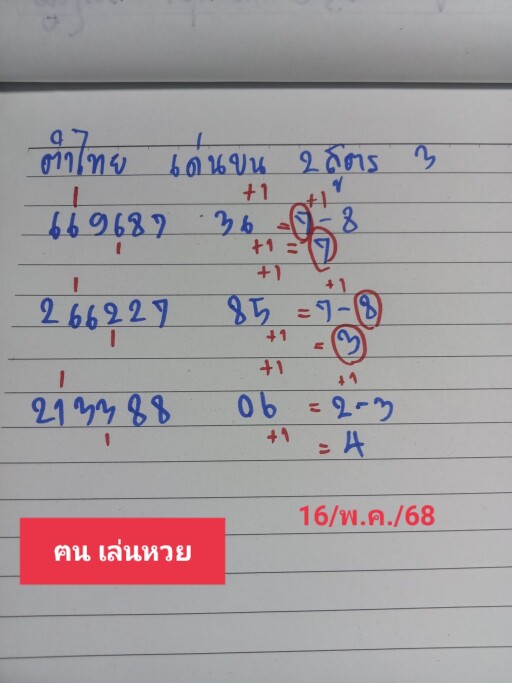 ตำไทย เด่นบน 2 สูตร 3
+1 +1
669687 36 = 7-8
+1 = 7
+1 +1
266227 85 = 7-8
+1 = 3
+1 +1
213388 06 = 2-3
+1 = 4
16/พ.ค./68
ฅน เล่นหวย